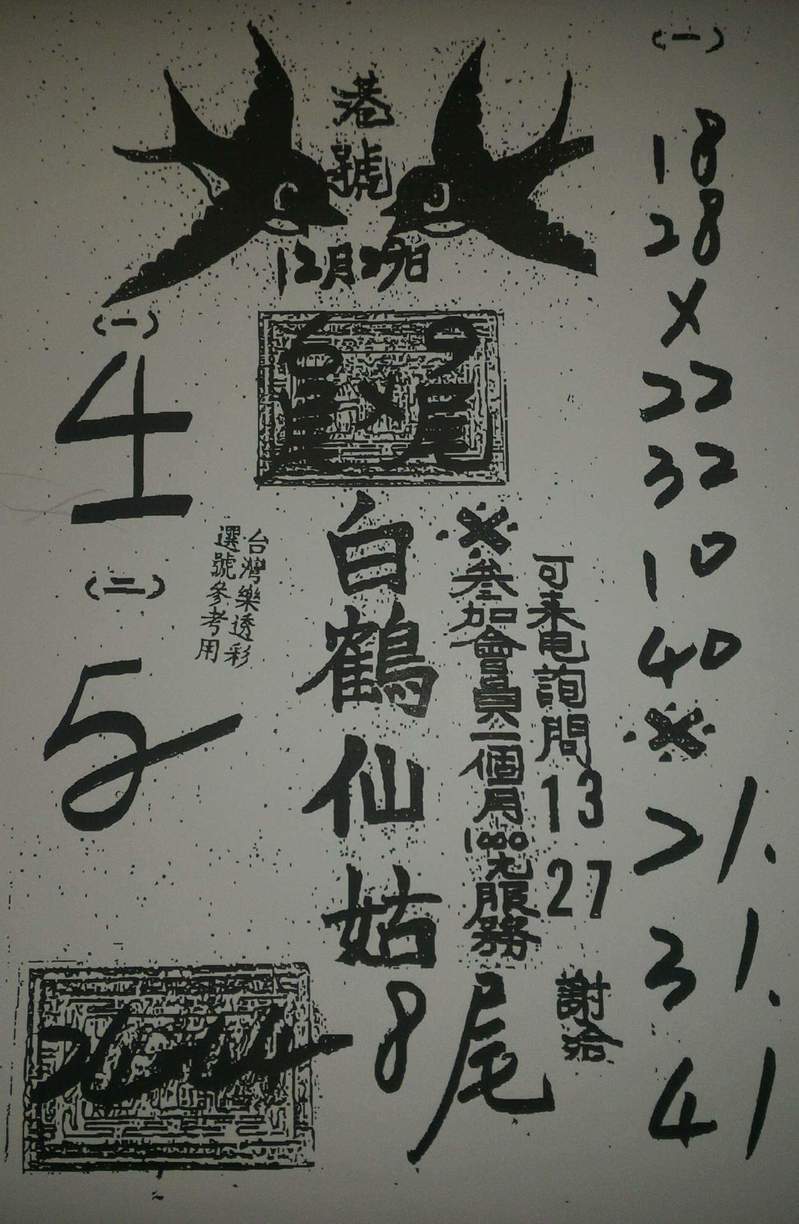 港號
12月29日
(一)
4
(二)
5
台灣樂透彩
選號參考用
白鶴仙姑
8尾
※參加會員一個月1000元服務
可來电詢問
13
27
謝洽
(一)
18
28
×
22
32
10
40
※
21.
31.
41